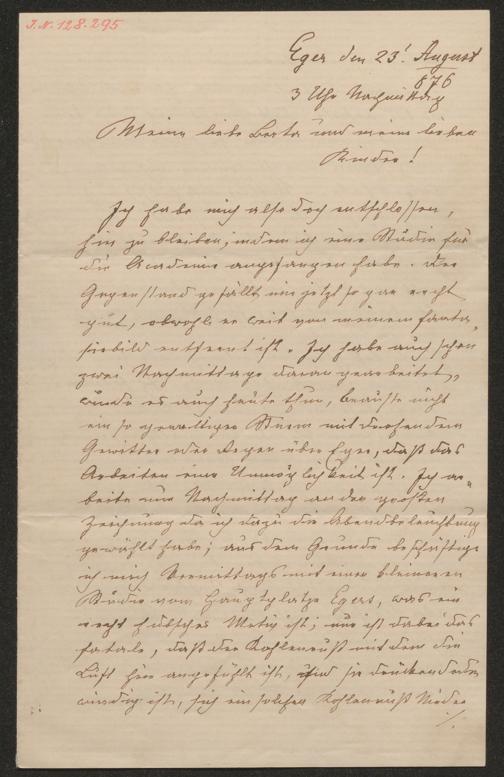 J.N. 128.295
Eger den 23t August
876
3 Uhr Nachmittag
Meine liebe Berta und meine lieben
Kinder!
Ich habe mich also doch entschlossen,
hier zu bleiben, indem ich eine Studie für
die Academie angefangen habe. Der
Gegenstand gefällt mir jetzt so gar recht
gut, obwohl er weit von meinem Fanta-
siebild entfernt ist. Ich habe auch schon
zwei Nachmittage daran gearbeitet,
würde es auch heute thun, brauste nicht
ein so gewaltiger Sturm mit drohendem
Gewitter oder Regen über Eger, daß das
Arbeiten eine Unmöglichkeit ist. Ich ar-
beite nur Nachmittag an der großen
Zeichnung da ich dazu die Abendbeleuchtung
gewählt habe; aus dem Grunde beschäftige
ich mich Vormittags mit einer kleineren
Studie vom Hauptplatze Egers, was ein
recht hübsches Motiv ist; nur ist dabei das
fatale, daß der Kohlenruß mit dem die
Luft hier angefühlt ist, und sie drückend oder
windig ist, sich ein solcher Kohlenruß Nieder